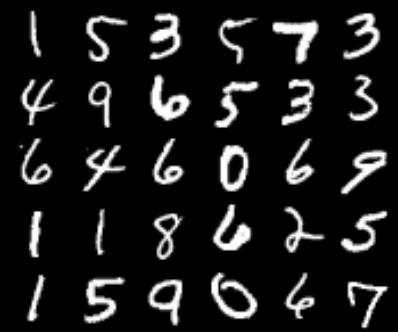 1 5 3 5 7 3
4 9 6 5 3 3
6 4 6 0 6 9
1 1 8 6 2 5
1 5 9 0 6 7